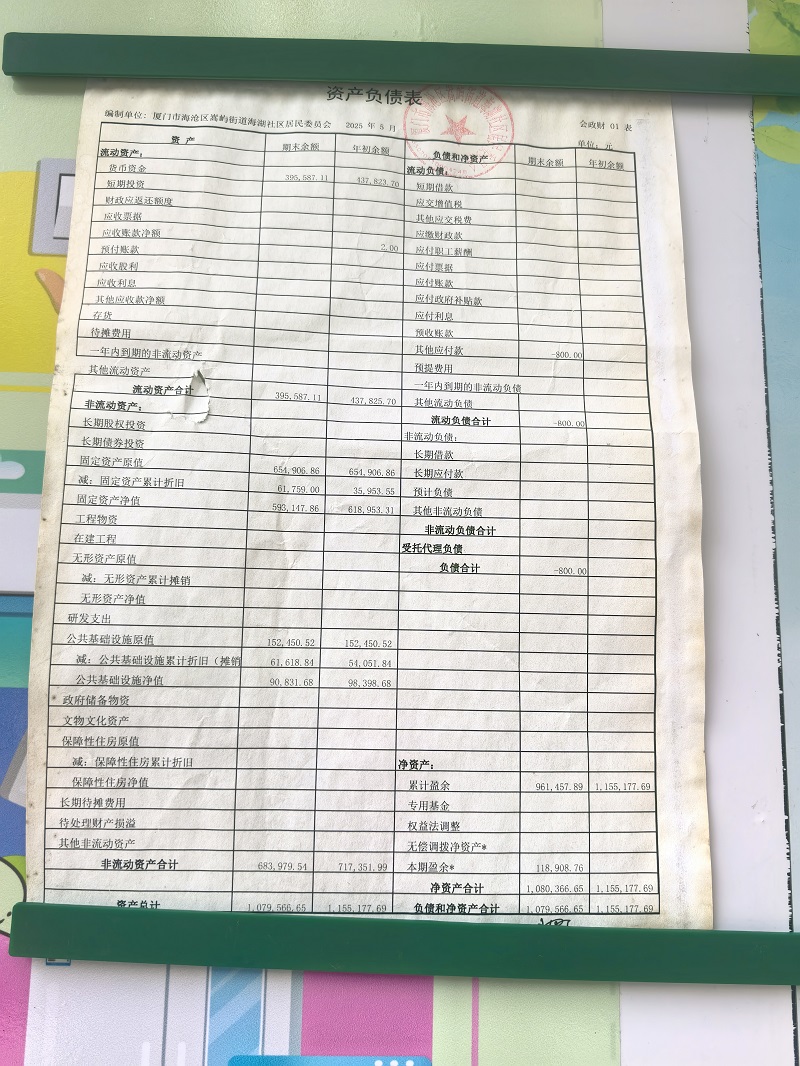 资产负债表
会政财 01 表
编制单位：厦门市海沧区嵩屿街道海湖社区居民委员会 2025 年 5 月 单位：元
资 产 期末余额 年初余额 负债和净资产 期末余额 年初余额
流动资产： 流动负债：
货币资金 395,587.11 437,823.70 短期借款
短期投资 应交增值税
财政应返还额度 其他应交税费
应收票据 应缴财政款
应收账款净额 应付职工薪酬
预付账款 2.00 应付票据
应收股利 应付账款
应收利息 应付政府补贴款
其他应收款净额 应付利息
存货 预收账款
待摊费用 其他应付款 -800.00
一年内到期的非流动资产 预提费用
其他流动资产 一年内到期的非流动负债
流动资产合计 395,587.11 437,825.70 其他流动负债
非流动资产： 流动负债合计 -800.00
长期股权投资 非流动负债：
长期债券投资 长期借款
固定资产原值 654,906.86 654,906.86 长期应付款
减：固定资产累计折旧 61,759.00 35,953.55 预计负债
固定资产净值 593,147.86 618,953.31 其他非流动负债
工程物资 非流动负债合计
在建工程 受托代理负债
无形资产原值 负债合计 -800.00
减：无形资产累计摊销
无形资产净值
研发支出
公共基础设施原值 152,450.52 152,450.52
减：公共基础设施累计折旧（摊销 61,618.84 54,051.84
公共基础设施净值 90,831.68 98,398.68
政府储备物资
文物文化资产
保障性住房原值
减：保障性住房累计折旧 净资产：
保障性住房净值 累计盈余 961,457.89 1,155,177.69
长期待摊费用 专用基金
待处理财产损溢 权益法调整
其他非流动资产 无偿调拨净资产*
非流动资产合计 683,979.54 717,351.99 本期盈余* 118,908.76
净资产合计 1,080,366.65 1,155,177.69
资产总计 1,079,566.65 1,155,177.69 负债和净资产合计 1,079,566.65 1,155,177.69